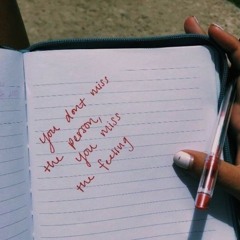 you don't miss
the person,
you miss
the feeling